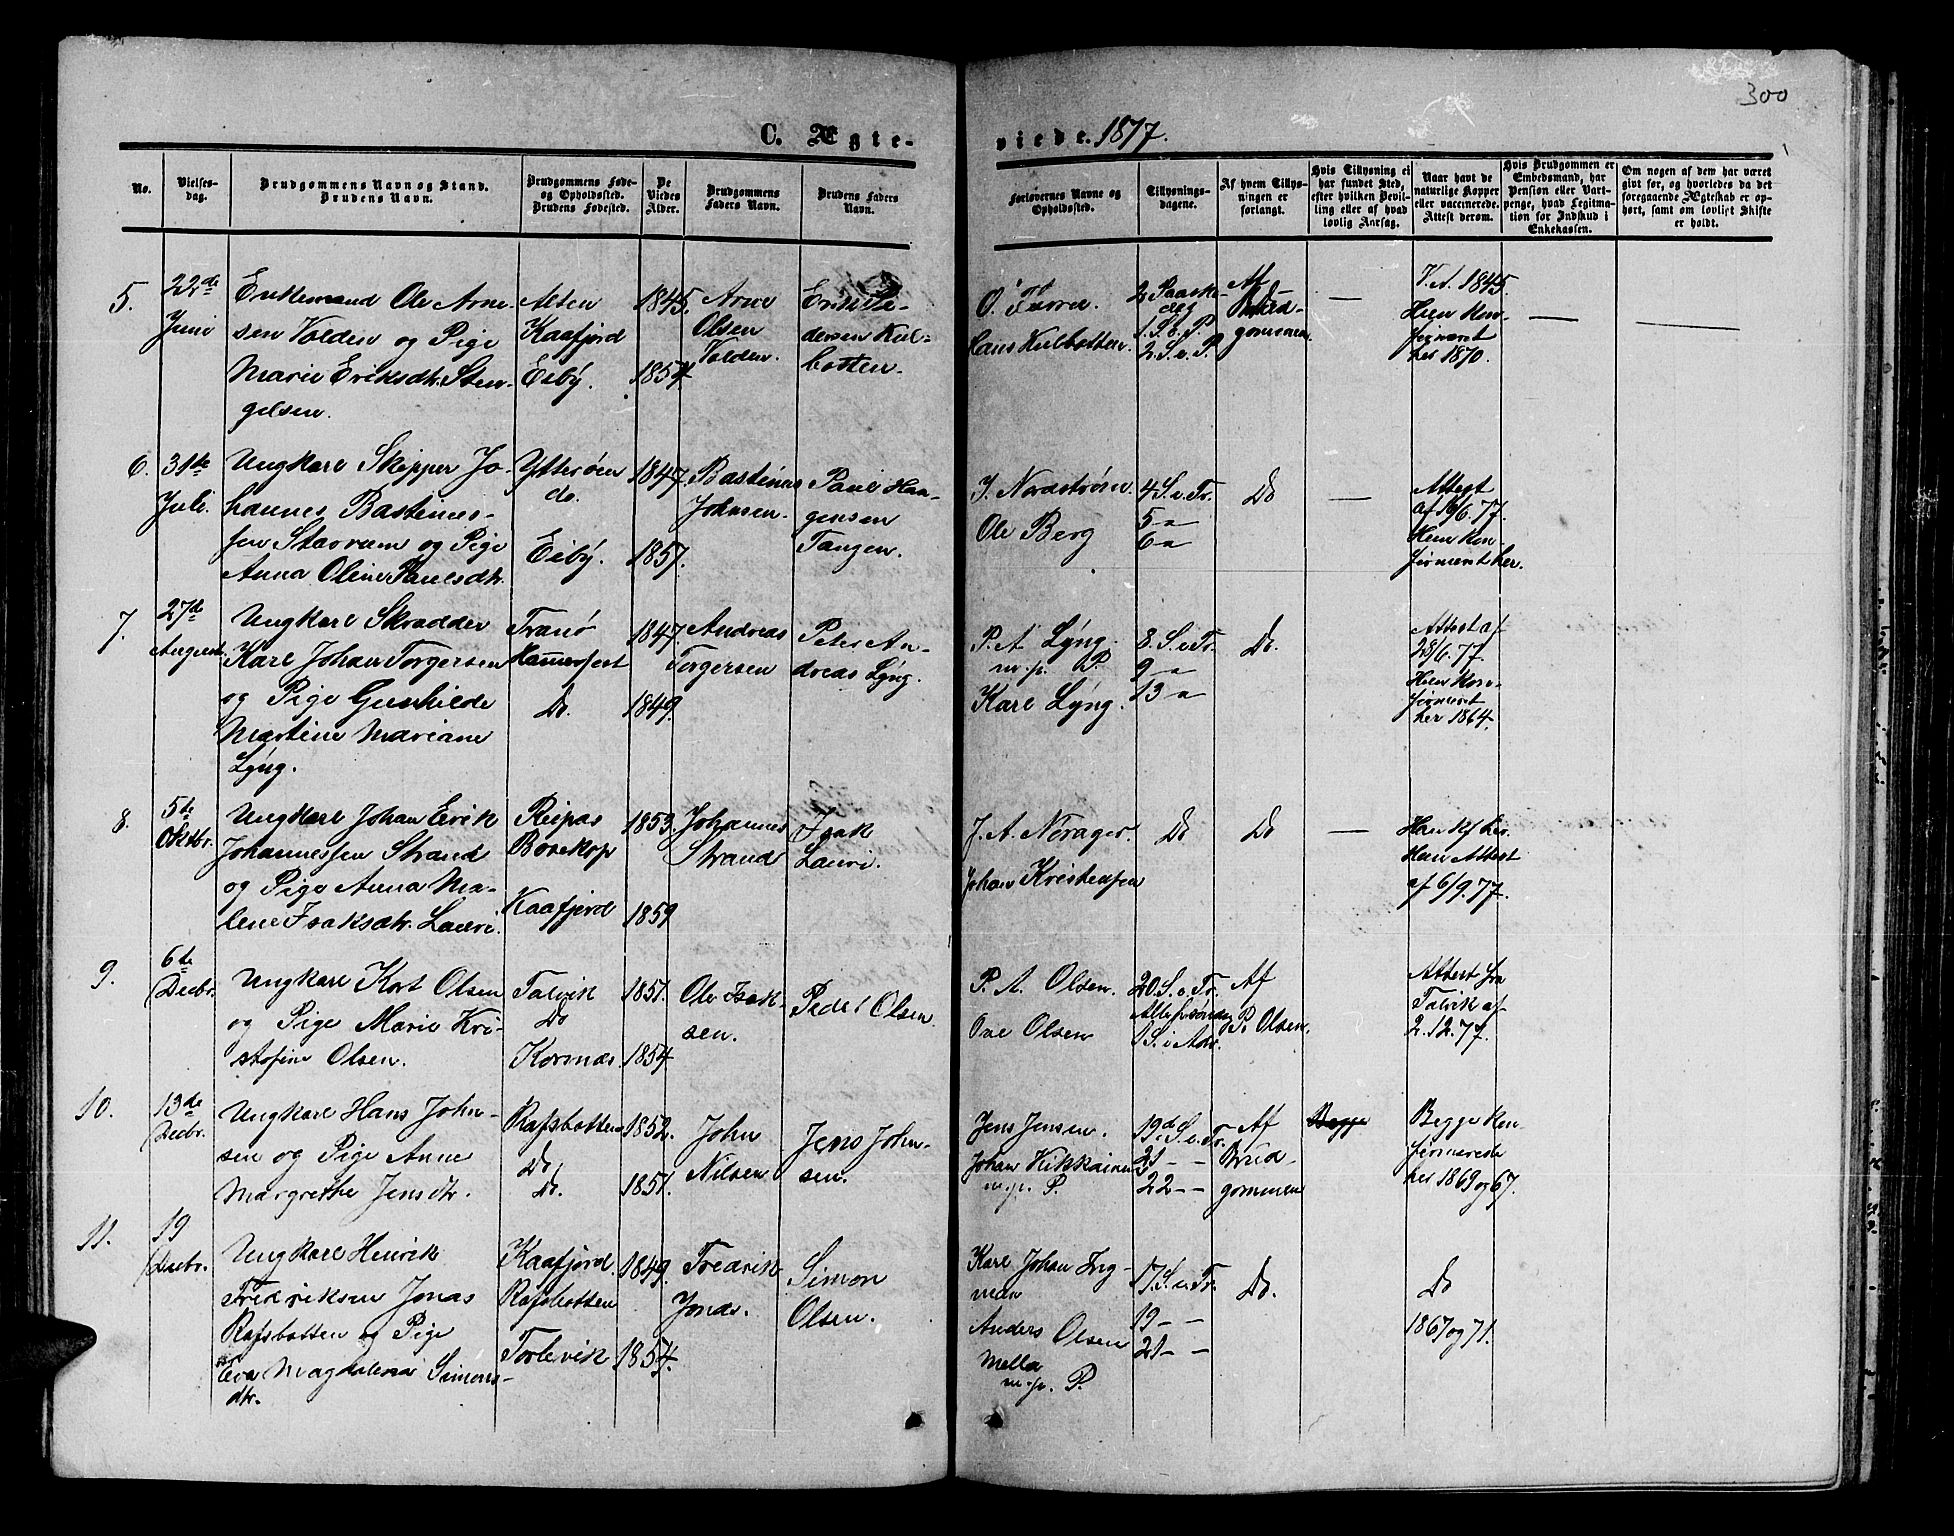 300
C. Ægte-
viede. 1877.
No.
Vielses-
dag.
Brudgommens Navn og Stand.
Brudens Navn.
Brudgommens Føde-
og Opholdssted.
Brudens Fødested.
De
Viedes
Alder.
Brudgommens
Faders Navn.
Brudens Faders
Navn.
Forlovernes Navne og
Opholdssted.
Tillysnings-
dagene.
Af hvem Tillys-
ningen er
forlangt.
Hvis Tillysning ei
har fundet Sted,
efter hvilken Bevil-
ling eller af hvad
lovlig Aarsag.
Naar havt de
naturlige Kopper
eller vaccinerede.
Attest derom.
Hvis Brudgommen er
Embedsmand, har
Pension eller Vart-
penge, hvad Legitima-
tion for Indskud i
Enkekassen.
Om nogen af dem har været
givt før, og hvorledes da det
foregaaende Ægteskab er op-
hørt, samt om lovligt Skifte
er holdt.
5.
22de
Juni
Enkemand Ole Arne-
sen Volden og Pige
Marie Eriksdtr. Sten-
gelsen.
Alten
Kaafjord
Eiby.
1845.
1854.
Arne
Olsen
Volden.
Erik Pe-
dersen Kul-
botten.
O. Furra.
Hans Kulbotten.
2 Paaske-
dag
1. S. e. P.
2. S. e. P.
Af
Brud-
gommen.
V. A. 1845.
Hun kon-
firmeret
her 1870.
6.
31te
Juli.
Ungkarl Skipper Jo-
hannes Bastinus-
sen Stavrum og Pige
Anna Oline Paulsdtr.
Ytterøen
do.
Eiby.
1847.
1857.
Bastinus
Johnsen.
Paul Haa-
gensen
Tangen.
J. Nordstrøm.
Ole Berg
4 S. e. Tr.
5 - "
6 - "
Do
Attest
af 19/6. 77.
Hun kon-
firmeret her.
7.
27de
August
Ungkarl Skrædder
Karl Johan Torgersen
og Pige Gunhilde
Martine Mariane
Lyng.
Tranø
Hammerfest
Do.
1847.
1849.
Andreas
Torgersen
Peter An-
dreas Lyng.
P. A. Lyng.
m. p. P.
Karl Lyng.
8. S. e. Tr.
9 - "
13 - "
Do.
Attest af
28/6. 77.
Hun kon-
firmeret
her 1864.
8.
5te
Oktbr.
Ungkarl Johan Erik
Johannessen Strand
og Pige Anna Ma-
lene Isaksdtr. Lauri.
Reipas
Bosekop
Kaafjord
1853.
1859
Johannes
Strand
Isak
Lauri.
J. A. Nerager.
Johan Kristensen
Do
Do
Han kf her.
Hun Attest
af 6/9. 77.
9.
6te
Decbr.
Ungkarl Kort Olsen
og Pige Marie Kri-
stofine Olsen.
Talvik
Do
Korsnæs.
1851.
1854
Ole Isak-
sen.
Peder Olsen.
P. A. Olsen.
Ove Olsen
20. S. e. Tr.
Allehelgendag
1 S. i Adv.
Af
P. Olsen.
Attest fra
Talvik af
2. 12. 77.
10.
13de
Decbr.
Ungkarl Hans John-
sen og Pige Anne
Margrethe Jensdtr.
Rafsbotten
Do
Do.
1852.
1851.
John
Nilsen
Jens John-
sen.
Jens Jensen.
Johan Kikkainen
m. p. P.
19de S. e. Tr.
21 - -
22 - -
Af
Brud-
gommen
Begge
Begge kon
firmerede
her 1869 og 67.
11.
19
Decbr.
Ungkarl Henrik
Fredriksen Jonas
Rafsbotten og Pige
Eva Magdalena Simons-
dtr.
Kaafjord.
Rafsbotten
Torlevik
1849.
1854.
Fredrik
Jonas.
Simon
Olsen.
Karl Johan Ing-
man
Anders Olsen
Mella
m. p. P.
17. S. e. Tr.
19 - -
21 - -
Do.
Do
1867 og 71.